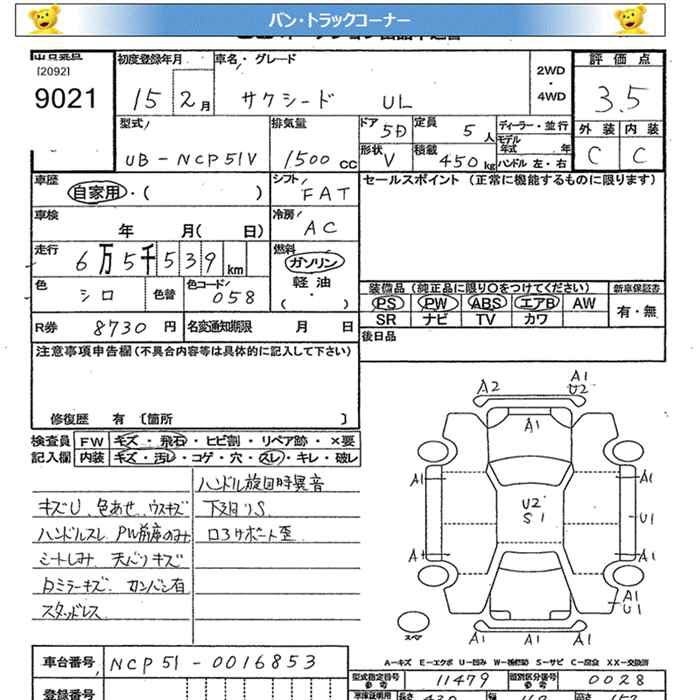 バン・トラックコーナー
[2092]
9021
初度登録年月
15 2月
車名・グレード
サクシード UL
2WD
・
4WD
評価点
3.5
外装 内装
C C
型式
UB-NCP51V
排気量
1500 CC
ドア 5D
定員 5人
形状 V
積載 450kg
ディーラー・並行
モデル年式 年
ハンドル 左・右
車歴
自家用・( )
シフト
FAT
車検
年 月( 日)
冷房
AC
走行
6万5千539km
燃料
ガソリン
軽油
( ・ )
色
シロ
色替
色コード
058
R券 8730円
名変通知期限 月 日
セールスポイント (正常に機能するものに限ります)
装備品 (純正品に限り○をつけてください)
新車保証書
PS PW ABS エアB AW
SR ナビ TV カワ
有・無
後日品
注意事項申告欄(不具合内容等は具体的に記入して下さい)
修復歴 有 〔箇所 〕
検査員 FW キズ・飛石・ヒビ割・リペア跡・×要
記入欄 内装 キズ・汚レ・コゲ・穴・スレ・キレ・破レ
キズU、色あせ、ウスキズ
ハンドルスレ PW前席のみ
シートしみ 天バリキズ
Dミラーキズ カンバン有
スタッドレス
ハンドル旋回時異音
下廻りS
コアサポート歪
A2
A1
U2
A1
A1
A1
U2
S1
U1
A1
A1
A1
U1
A1 A1 A1
スペア
A-キズ E-エクボ U-凹み W-補修跡 S-サビ C-腐食 XX-交換済
車台番号 NCP51-0016853
型式指定番号
参考
11479
類別区分番号
参考
0028
登録番号